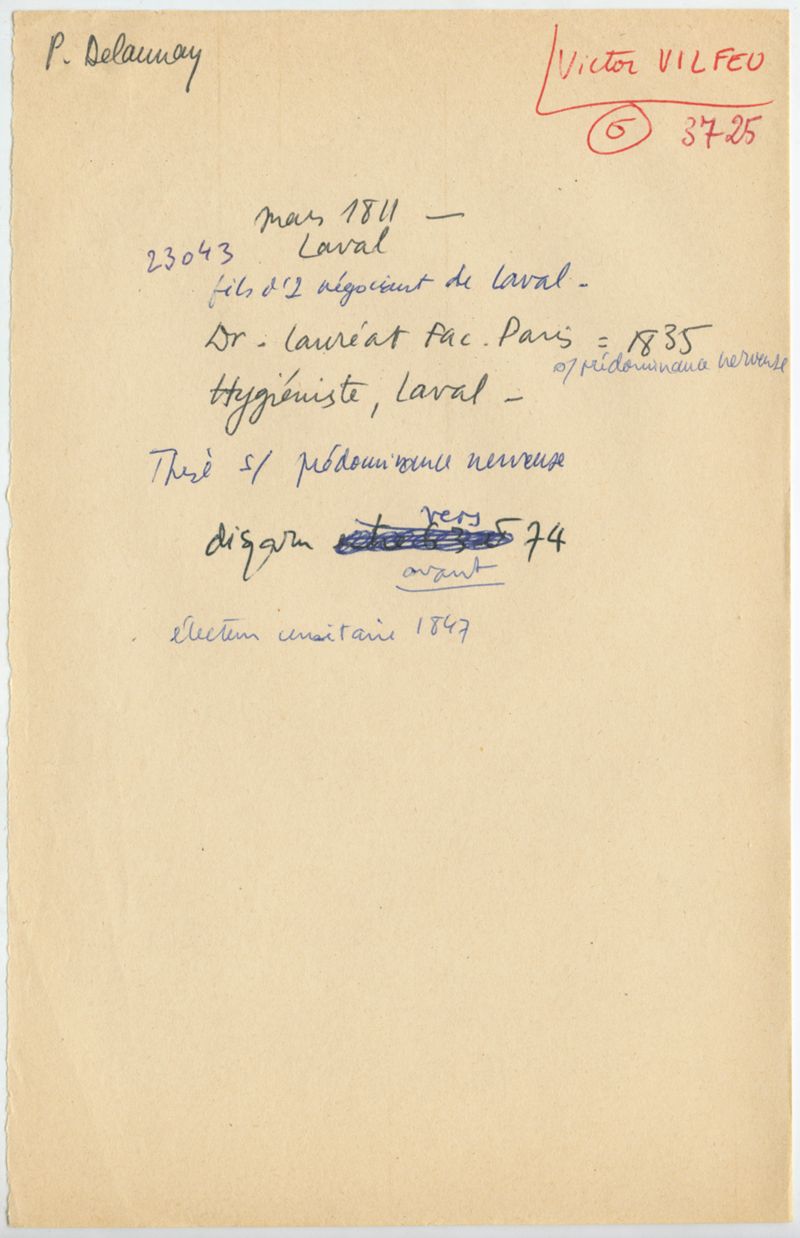 P. Delaunay
Victor VILFEU
6 3725
mars 1811 —
23043 Laval
fils d'1 négociant de Laval -
Dr. lauréat Fac. Paris = 1835
s/ prédominance nerveuse
Hygiéniste, Laval -
Thèse s/ prédominance nerveuse
vers
disparu 74
avant
électeur censitaire 1847